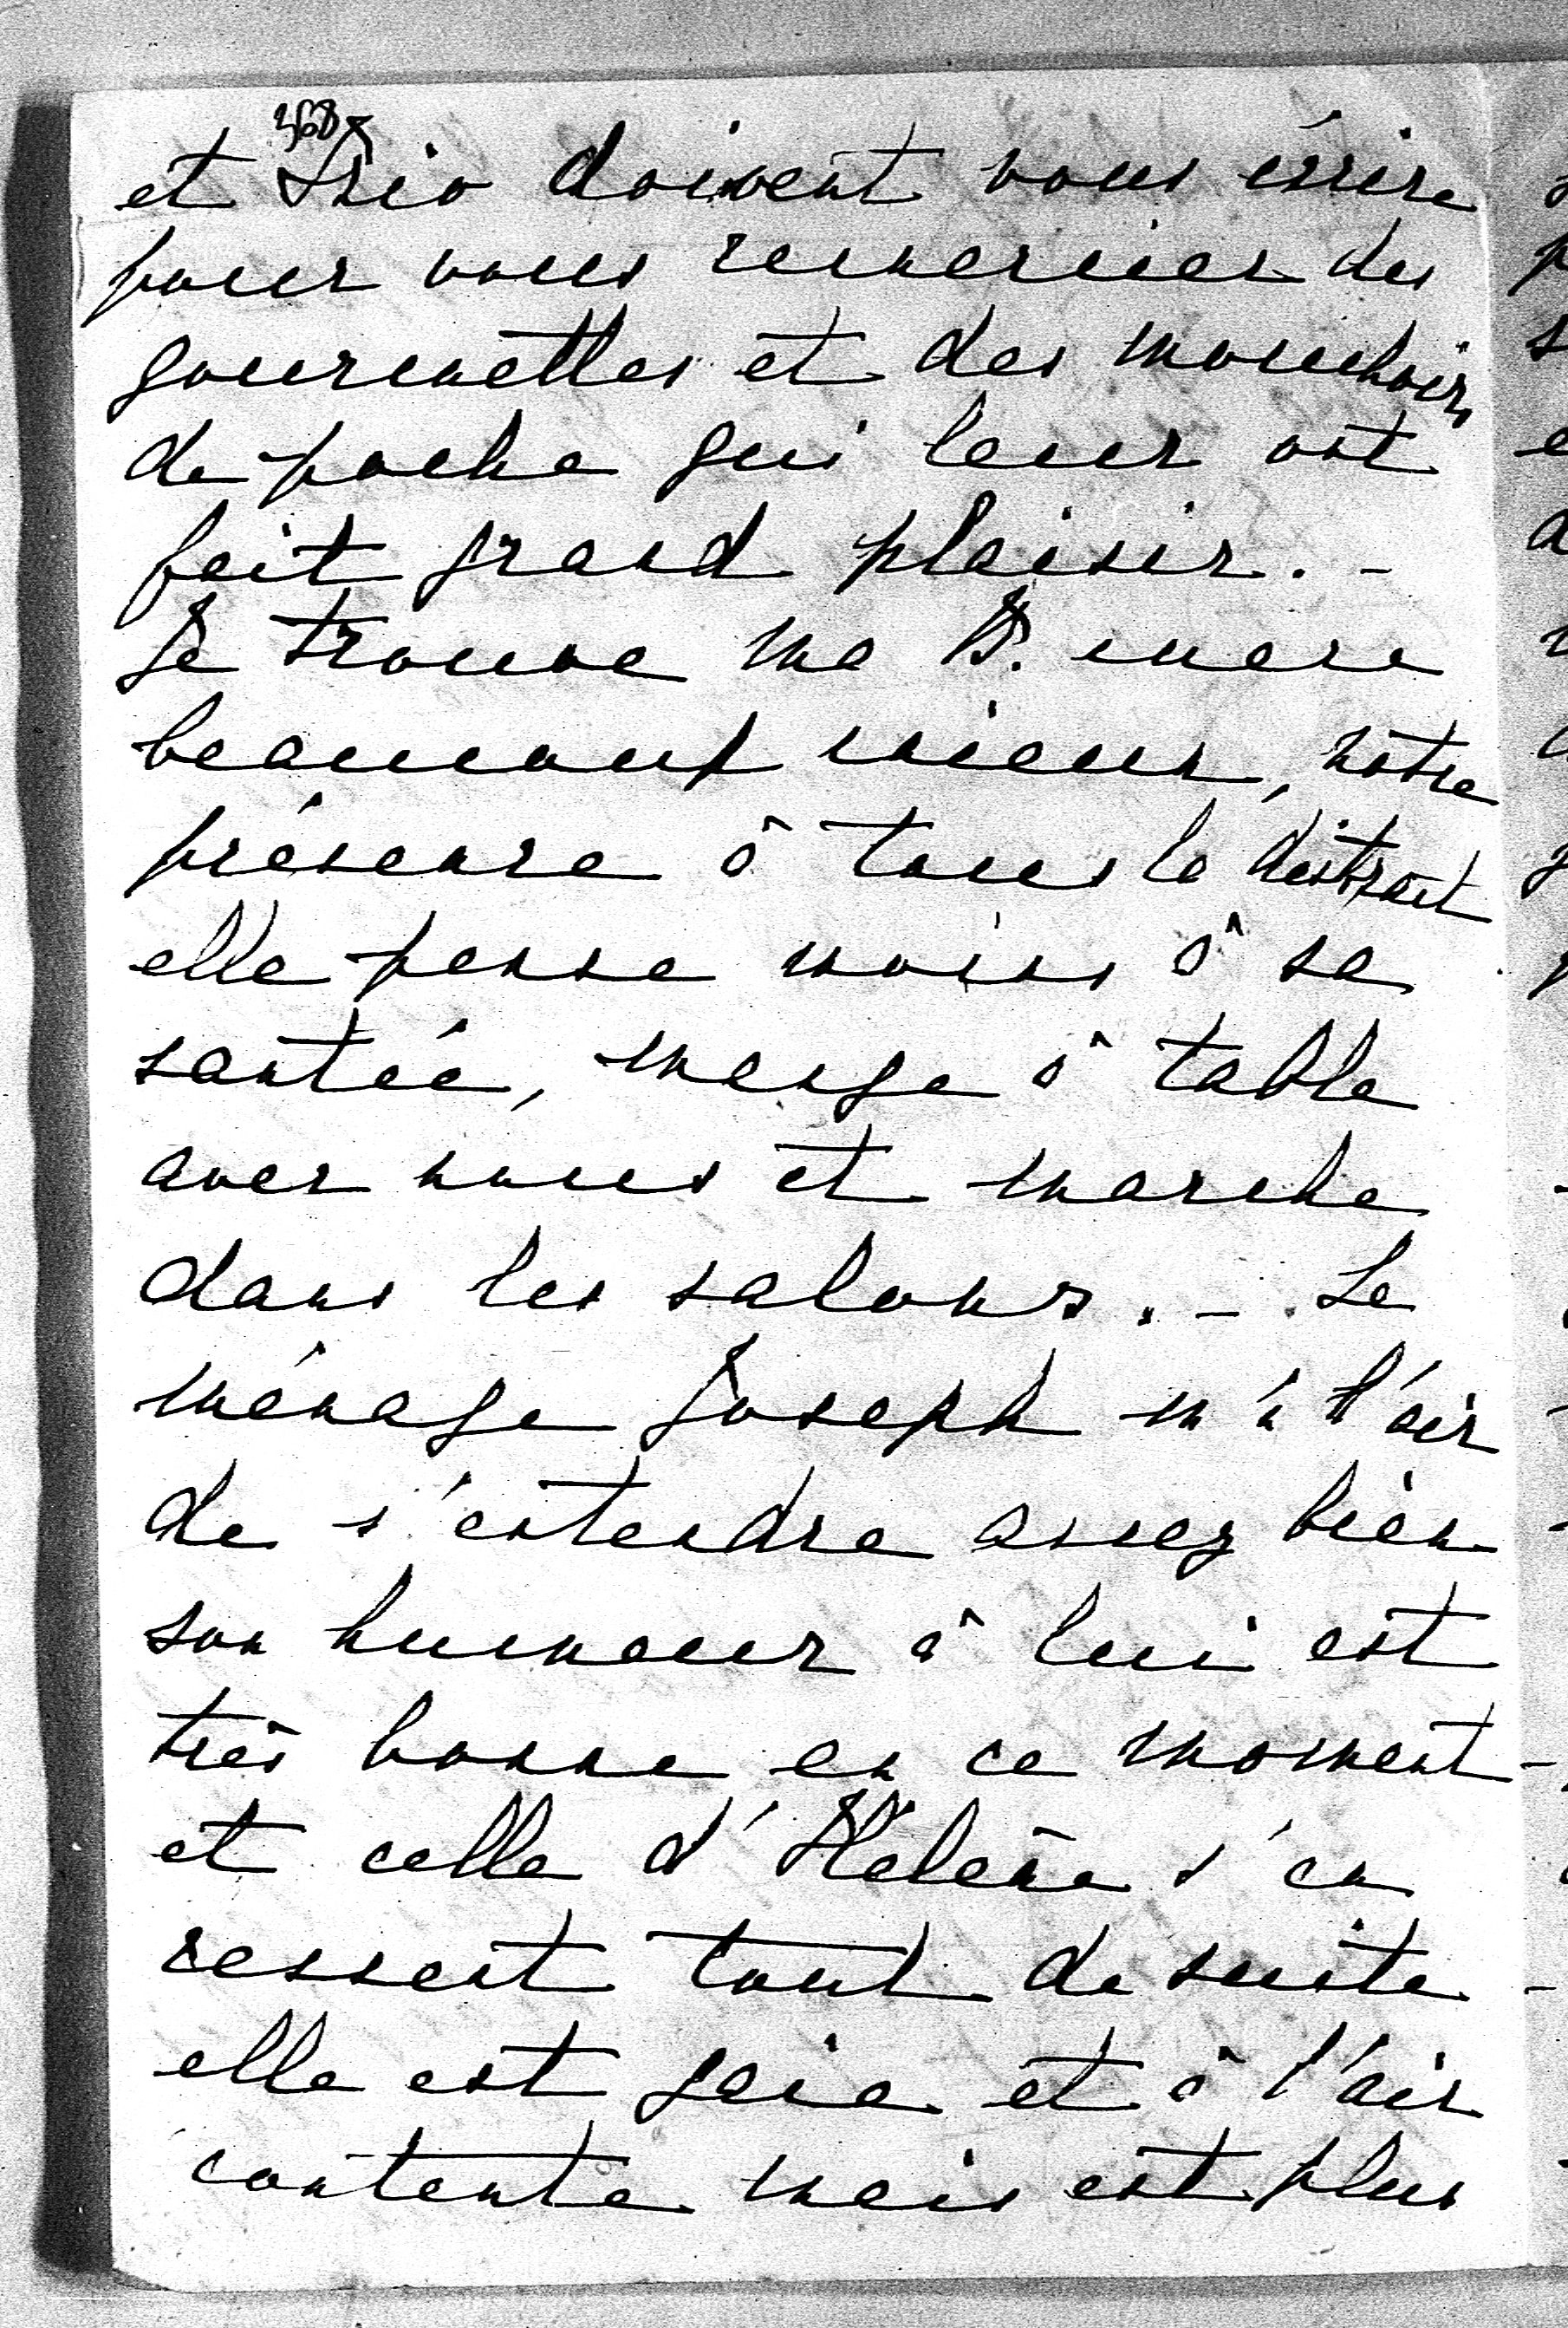 368
et Trio doivent vous écrire
pour vous remercier des
gourmettes et des mouchoirs
de poche qui leur ont
fait grand plaisir. -
Je trouve ma B. mere
beaucoup mieux, notre
présence à tous la distrait
elle pense moins à sa
santée, mange à table
avec nous et marche
dans les salons. - Le
ménage Joseph m'a l'air
de s'entendre assez bien
son humeur à lui est
très bonne en ce moment -
et celle d'Hélène s'en
ressent tout de suite -
elle est gaie et à l'air
contente mais est plus